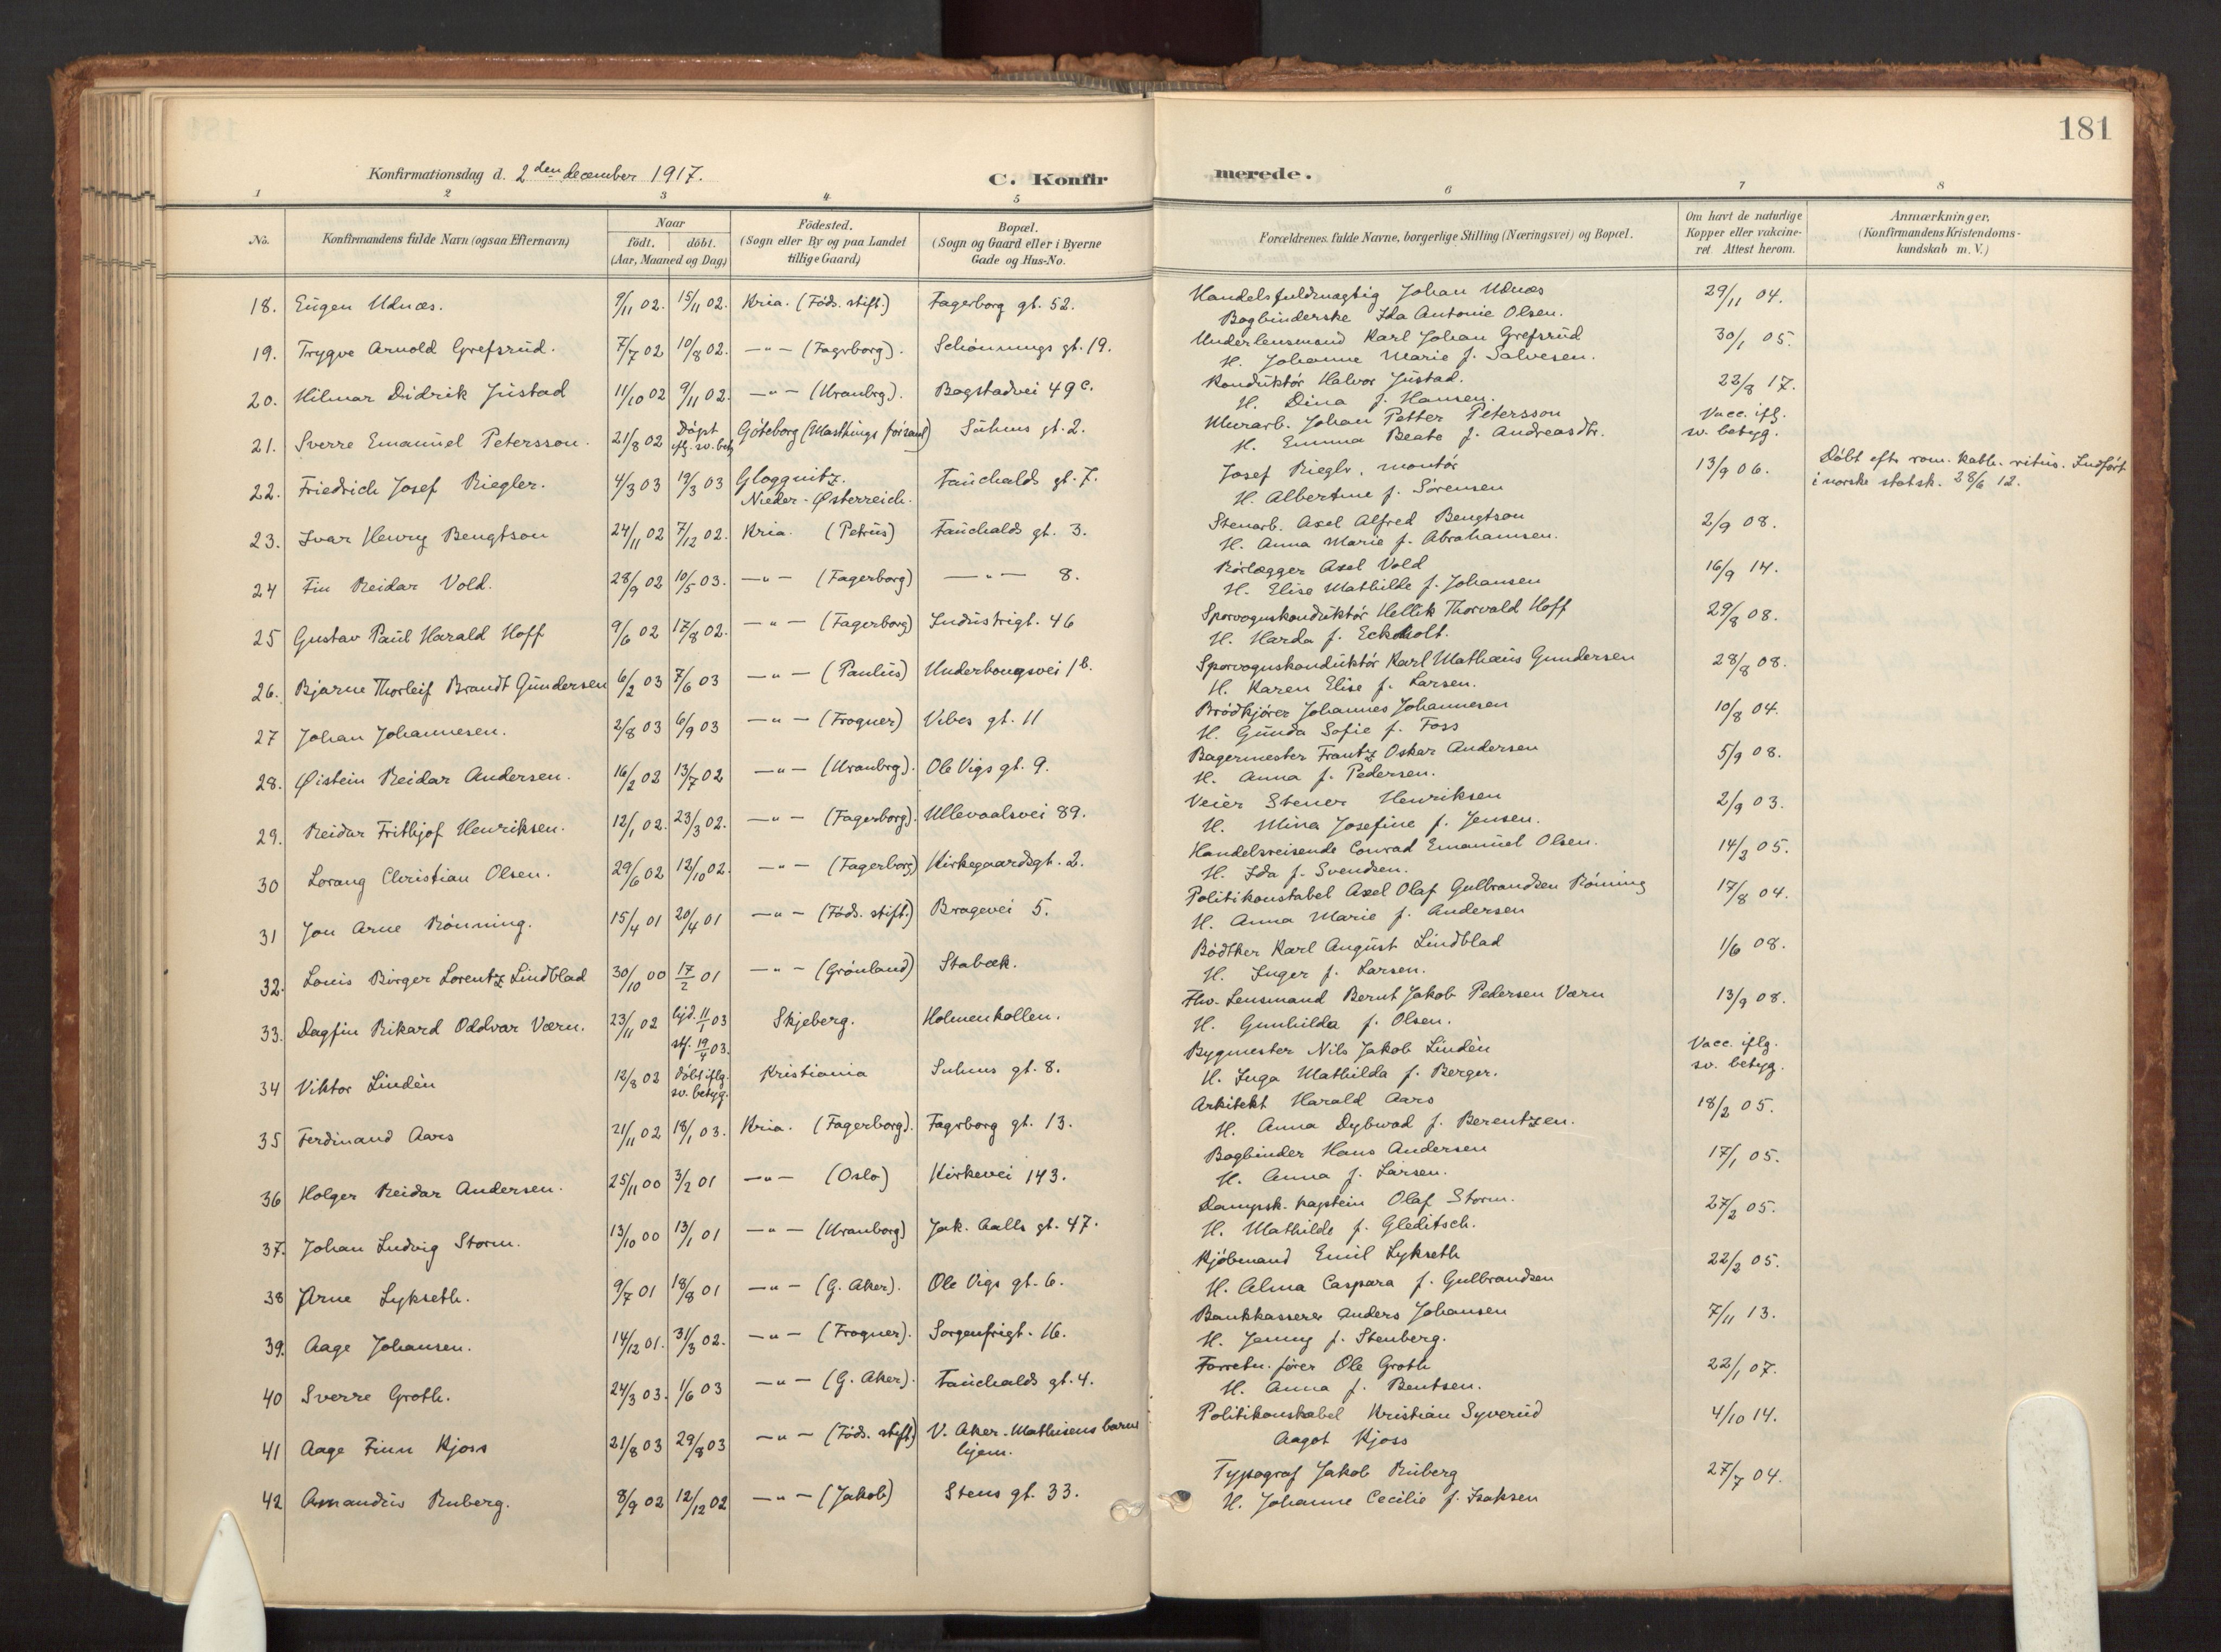 181
Konfirmationsdag d. 2den december 1917.
C. Konfir
merede.
1 2 3 4 5 6 7 8
No.
Konfirmandens fulde Navn (ogsaa Efternavn)
Naar
födt. döbt.
(Aar, Maaned og Dag)
Födested.
(Sogn eller By og paa Landet
tillige Gaard)
Bopæl.
(Sogn og Gaard eller i Byerne
Gade og Hus-No.
Forældrenes fulde Navne, borgerlige Stilling (Næringsvei) og Bopæl.
Om havt de naturlige
Kopper eller vakcine-
ret. Attest herom.
Anmærkninger.
(Konfirmandens Kristendoms-
kundskab m. V.)
18. Eugen Udnæs. 9/11 02. 15/11 02. Kria. (Föds. stift.) Fagerborg gt. 52. Handelsfuldmægtig Johan Udnæs 29/11 04.
Bogbinderske Ida Antonie Olsen.
19. Trygve Arnold Grefsrud. 7/7 02 10/8 02. —"— (Fagrborg). Schönnings gt. 19. Underlensmand Karl Johan Grefsrud 30/1 05.
H. Johanne Marie f. Salvesen.
20. Hilmar Didrik Justad 11/10 02 9/11 02. —"— (Uranbrg.). Bogstadvei 49 c. Konduktör Halvor Justad. 22/8 17.
H. Dina f. Hansen.
21. Sverre Emanuel Petersson. 21/8 02 Döpt Göteborg (Masthugs församl) Suhms gt. 2. Murarb. Johan Petter Petersson Vacc. iflg.
iflg. sv. bet. H. Emma Beate f. Andreasdtr. sv. betyg.
22. Friedrich Josef Riegler. 4/3 03 19/3 03 Gloggnitz. Fauchalds gt. 7. Josef Riegler, montör 13/9 06. Döbt eft. rom. kath. ritus. Indfört
Nieder-Österreich. H. Albertine f. Sörensen i norske statsk. 28/6 12.
23. Ivar Henry Bengtson 24/11 02 7/12 02. Kria. (Petrus) Fauchalds gt. 3. Stenarb. Axel Alfred Bengtson 2/9 08.
H. Anna Marie f. Abrahamsen.
24 Fin Reidar Vold. 28/9 02 10/5 03. —"— (Fagerborg) —"— 8. Rörlægger Axel Vold 16/9 14.
H. Elise Mathilde f. Johansen
25 Gustav Paul Harald Hoff 9/6 02 17/8 02. —"— (Fagerborg) Industrigt. 46 Sporvognskonduktör Hellik Thorvald Hoff 29/8 08.
H. Harda f. Eckholt.
26. Bjarne Thorleif Brandt Gundersen 6/2 03 7/6 03 —"— (Paulus) Underhaugsvei 1 b. Sporvognskonduktör Karl Mathæus Gundersen 28/8 08.
H. Karen Elise f. Larsen.
27 Johan Johannesen. 2/8 03 6/9 03 —"— (Frogner) Vibes gt. 11 Brödkjörer Johannes Johannesen 10/8 04.
H. Gunda Sofie f. Foss
28. Øistein Reidar Andersen. 16/2 02 13/7 02 —"— (Uranbrg). Ole Vigs gt. 9. Bagermester Frantz Oskar Andersen 5/9 08.
H. Anna f. Pedersen.
29. Reidar Frithjof Henriksen. 12/1 02. 23/3 02. —"— (Fagerborg). Ullevaalsvei 89. Veier Stener Henriksen 2/9 03.
H. Mina Josefine f. Jensen.
30 Lorang Christian Olsen. 29/6 02 12/10 02. —"— (Fagerborg) Kirkegaardsgt. 2. Handelsreisende Conrad Emanuel Olsen. 14/2 05.
H. Ida f. Svendsen.
31 Jon Arne Rönning. 15/4 01 20/4 01 —"— (Föds. stift.) Bragevei 5. Politikonstabel Axel Olaf Gulbrandsen Rönning 17/8 04.
H. Anna Marie f. Andersen
32. Louis Birger Lorentz Lindblad 30/10 00 17/2 01 —"— (Grönland) Stabæk. Bödtker Karl August Lindblad 1/6 08.
H. Inger f. Larsen.
33. Dagfin Rikard Oddvar Værn. 23/11 02 hjd. 11/1 03 Skjeberg. Holmenkollen. Fhv. Lensmand Bernt Jakob Pedersen Værn 13/9 08.
stf. 19/4 03. H. Gunhilda f. Olsen.
34 Viktor Lindén 12/8 02 döbt iflg. Kristiania Suhms gt. 8. Bygmester Nils Jakob Lindén Vacc. iflg.
sv. betyg. H. Inga Mathilda f. Berger. sv. betyg.
35 Ferdinand Aars 21/11 02 18/1 03. Kria. (Fagerborg). Fagrborg gt. 13. Arkitekt Harald Aars 18/2 05.
H. Anna Dybwad f. Berentzen.
36 Holger Reidar Andersen. 25/11 00 3/2 01 —"— (Oslo) Kirkevei 143. Bogbinder Hans Andersen 17/1 05.
H. Anna f. Larsen.
37. Johan Ludvig Storm. 13/10 00 13/1 01 —"— (Uranborg) Jak. Aalls gt. 47. Dampsk. kaptein Olaf Storm. 27/2 05.
H. Mathilde f. Gleditsch.
38 Arne Lykseth. 9/7 01 18/8 01 —"— (G. Aker). Ole Vigs gt. 6. Kjöbmand Emil Lykseth 22/2 05.
H. Alma Caspara f. Gulbrandsen
39. Aage Johansen. 14/12 01. 31/3 02. —"— (Frogner). Sorgenfrigt. 16. Bankkasserer Anders Johansen 7/11 13.
H. Jenny f. Stenberg.
40 Sverre Groth. 24/3 03. 1/6 03 —"— (G. Aker). Fauchalds gt. 4. Forretn. förer Ole Groth 22/1 07.
H. Anna f. Bentsen.
41 Aage Finn Kjoss 21/8 03 29/8 03 —"— (Föds. stift.) V. Aker. Mathisens barne Politikonstabel Kristian Syverud 4/10 14.
hjem. Aagot Kjoss
42 Amandus Ruberg. 8/9 02 12/12 02 —"— (Jakob) Stens gt. 33. Typograf Jakob Ruberg 27/7 04.
H. Johanne Cecilie f. Isaksen